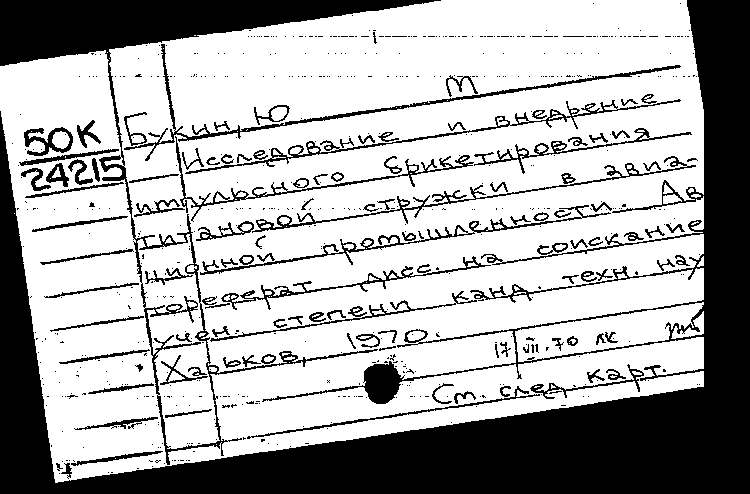 50К
24215
Букин, Ю М
Исследование и внедрение
импульсного брикетирования
титановой стружки в авиа-
ционной промышленности. Ав
тореферат дисс. на соискание
учен. степени канд. техн. нау
Харьков, 1970.
17 VII.70 лк
См. след. карт.